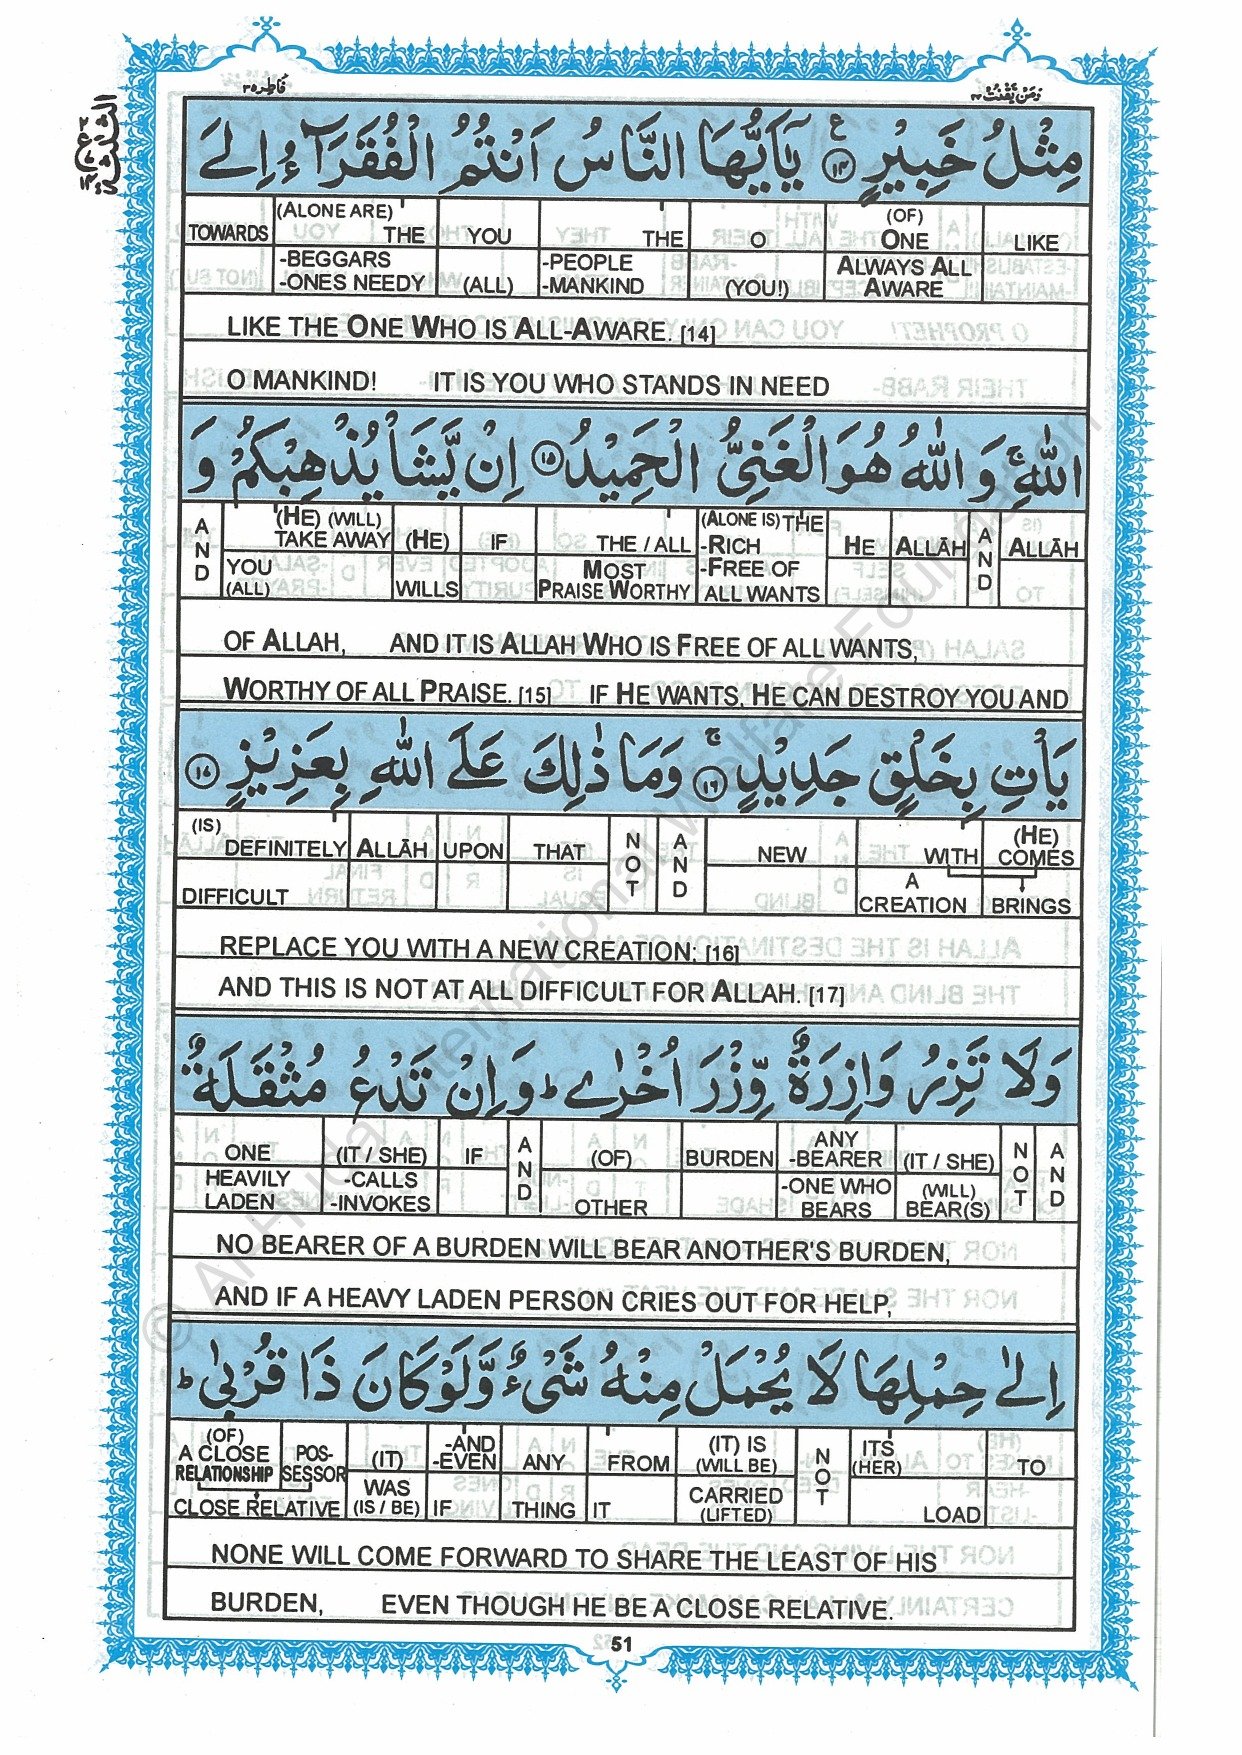 فاطر ۳۵
ومن یقنت ۲۲
مِثْلُ خَبِيْرٍ ۱۴ يٰۤاَيُّهَا النَّاسُ اَنْتُمُ الْفُقَرَآءُ اِلَى
TOWARDS (ALONE ARE) THE YOU THE O (OF) ONE LIKE
-BEGGARS -ONES NEEDY (ALL) -PEOPLE -MANKIND (YOU!) ALWAYS ALL AWARE
LIKE THE ONE WHO IS ALL-AWARE. [14]
O MANKIND! IT IS YOU WHO STANDS IN NEED
اللّٰهِ ۚ وَ اللّٰهُ هُوَ الْغَنِىُّ الْحَمِيْدُ ۱۵ اِنْ يَّشَاْ يُذْهِبْكُمْ وَ
AND (HE) (WILL) TAKE AWAY (HE) IF THE / ALL (ALONE IS) THE -RICH HE ALLĀH AND ALLĀH
YOU (ALL) WILLS MOST PRAISE WORTHY -FREE OF ALL WANTS
OF ALLAH, AND IT IS ALLAH WHO IS FREE OF ALL WANTS,
WORTHY OF ALL PRAISE. [15] IF HE WANTS, HE CAN DESTROY YOU AND
يَاْتِ بِخَلْقٍ جَدِيْدٍ ۚ ۱۶ وَمَا ذٰلِكَ عَلَى اللّٰهِ بِعَزِيْزٍ ۱۷
(IS) DEFINITELY ALLĀH UPON THAT NOT AND NEW WITH (HE) COMES
DIFFICULT A CREATION BRINGS
REPLACE YOU WITH A NEW CREATION; [16]
AND THIS IS NOT AT ALL DIFFICULT FOR ALLAH. [17]
وَلَا تَزِرُ وَازِرَةٌ وِّزْرَ اُخْرٰى ؕ وَاِنْ تَدْعُ مُثْقَلَةٌ
ONE (IT / SHE) IF AND (OF) BURDEN ANY -BEARER (IT / SHE) NOT AND
HEAVILY LADEN -CALLS -INVOKES OTHER -ONE WHO BEARS (WILL) BEAR(S)
NO BEARER OF A BURDEN WILL BEAR ANOTHER'S BURDEN,
AND IF A HEAVY LADEN PERSON CRIES OUT FOR HELP,
اِلٰى حِمْلِهَا لَا يُحْمَلْ مِنْهُ شَىْءٌ وَّلَوْ كَانَ ذَا قُرْبٰى ؕ
(OF) A CLOSE RELATIONSHIP POS-SESSOR (IT) -AND -EVEN ANY FROM (IT) IS (WILL BE) NOT ITS (HER) TO
CLOSE RELATIVE WAS (IS / BE) IF THING IT CARRIED (LIFTED) LOAD
NONE WILL COME FORWARD TO SHARE THE LEAST OF HIS
BURDEN, EVEN THOUGH HE BE A CLOSE RELATIVE.
51
© Al-Huda International Welfare Foundation